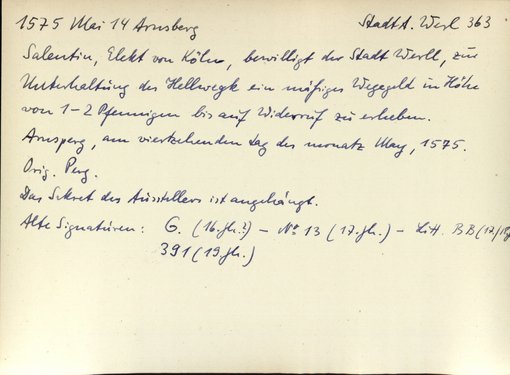 1575 Mai 14 Arnsberg StadtA. Werl 363
Salentin, Elekt von Köln, bewilligt der Stadt Werll, zur
Unterhaltung des Hellwegk ein mäßiges Wegegeld in Höhe
von 1-2 Pfennigen bis auf Widerruf zu erheben.
Arnsperg, am viertzehenden tag des monatz May, 1575.
Orig. Perg.
Das Sekret des Ausstellers ist angehängt.
Alte Signaturen: G. (16. Jh.?) – No 13 (17. Jh.) – Litt. BB (17/18
391 (19. Jh.)